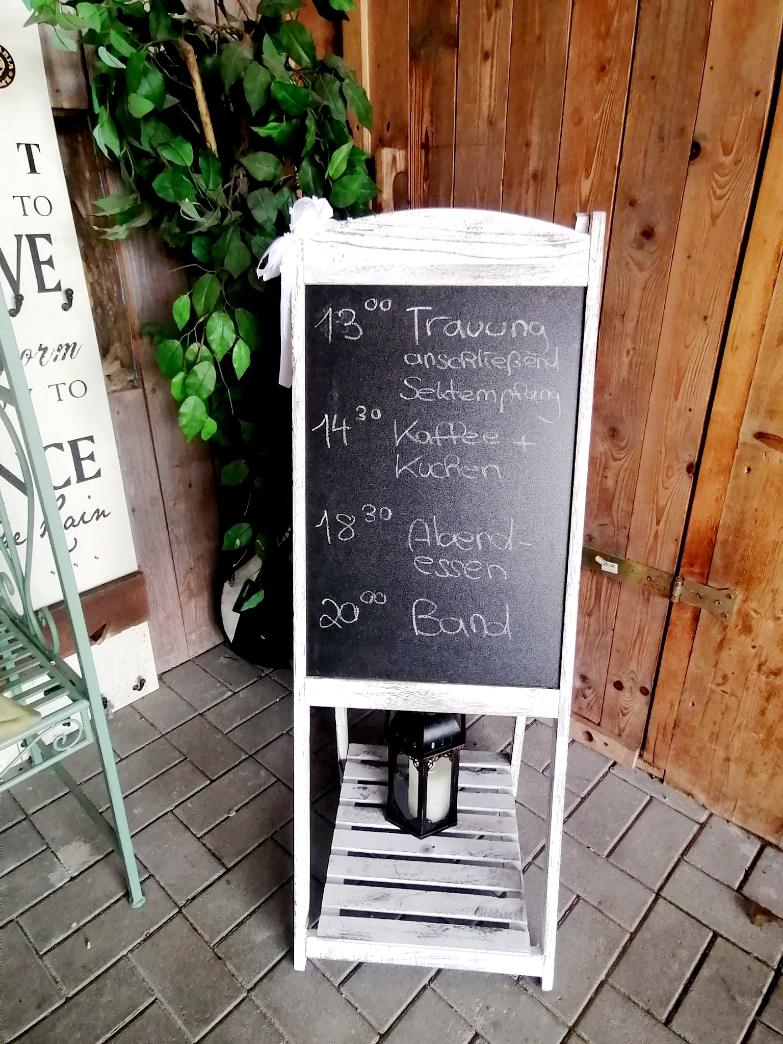 T
TO
VE
orm
TO
NCE
Rain
13 00 Trauung
anschließend
Sektempfang
14 30 Kaffee +
Kuchen
18 30 Abend-
essen
20 00 Band